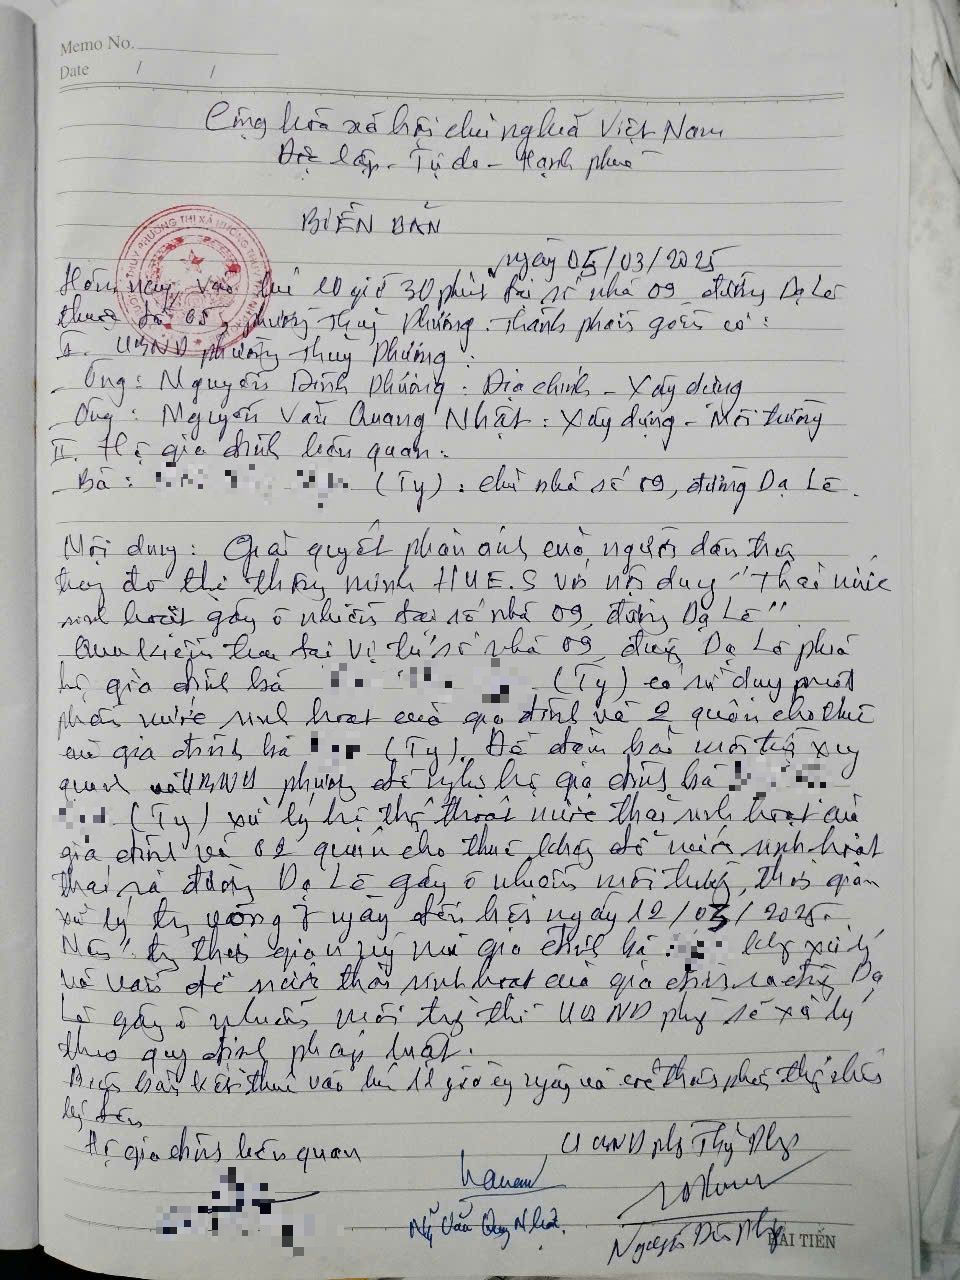 Memo No.
Date / /
Cộng hòa xã hội chủ nghĩa Việt Nam
Độc lập - Tự do - Hạnh phúc
BIÊN BẢN
ngày 05/03/2025
Hôm nay, vào lúc 10 giờ 30 phút tại số nhà 09, đường Dạ Lê
thuộc tổ 05, phường Thủy Phương. Thành phần gồm có:
I. UBND phường Thủy Phương:
- Ông: Nguyễn Đình Phương: Địa chính - Xây dựng
- Ông: Nguyễn Văn Quang Nhật: Xây dựng - Môi trường
II. Hộ gia đình liên quan:
- Bà: (Ty): chủ nhà số 09, đường Dạ Lê.
Nội dung: Giải quyết phản ánh của người dân trên
trang đô thị thông minh HUE.S với nội dung "Thải nước
sinh hoạt gây ô nhiễm tại số nhà 09, đường Dạ Lê".
Qua kiểm tra tại vị trí số nhà 09, đường Dạ Lê
hộ gia đình bà (Ty) có
nước sinh hoạt của gia đình và 2 quán cho thuê
của gia đình bà (Ty). Để đảm bảo môi trường xung
quanh UBND phường đề nghị hộ gia đình bà
(Ty) xử lý hệ thống thoát nước thải sinh hoạt của
gia đình và 02 quán cho thuê không để nước sinh hoạt
thải ra đường Dạ Lê gây ô nhiễm môi trường, thời gian
xử lý trong vòng 7 ngày đến hết ngày 12/03/2025.
Nếu trong thời gian này mà gia đình bà không xử lý
và vẫn để nước thải sinh hoạt của gia đình ra đường Dạ
Lê gây ô nhiễm môi trường thì UBND phường sẽ xử lý
theo quy định pháp luật.
Biên bản kết thúc vào lúc 11 giờ cùng ngày và các thành phần thống nhất
ký tên
Hộ gia đình liên quan
UBND phường Thủy Phương
Ng Văn Quang Nhật
Nguyễn Đình Phương
HẢI TIẾN